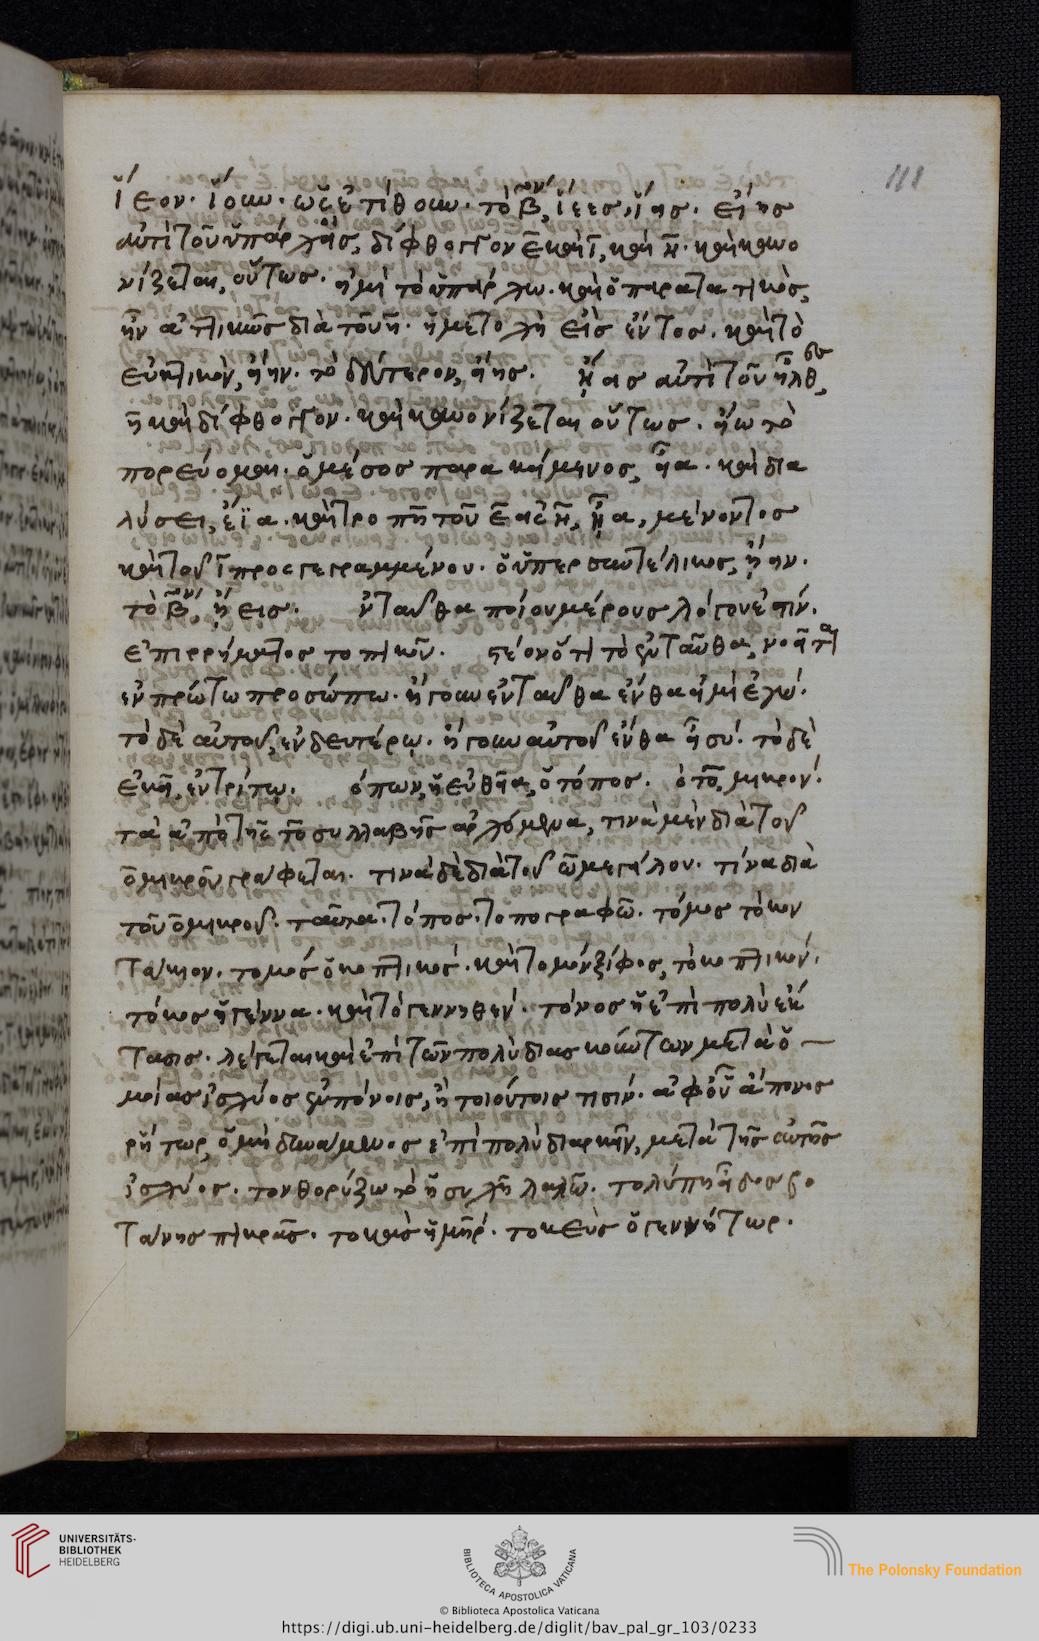 111
ἵεον· ἵουν· ὡς ἐτίθουν· τὸ β, ἵεες, ἵης. εἴης
ἀντὶ τοῦ ὑπάρχης, δίφθογγον ε καὶ ι, καὶ η· καὶ κανο
νίζεται, οὕτως. εἰμὶ τὸ ὑπάρχω· καὶ ὁ παρατατικὸς,
ἦν
διὰ τοῦ η· ἡ μετοχὴ εἰς ἐντος· καὶ τὸ
εὐκτικὸν, εἴην· τὸ δεύτερον, εἴης. ἤας ἀντὶ τοῦ ἦλθες
η καὶ δίφθογγον· καὶ κανονίζεται οὕτως. εἴω τὸ
πορεύομαι· ὁ μέσος παρακείμενος, εἶα· καὶ δια
λύσει, ἔϊα· καὶ τροπῆ τοῦ ε εἰς η, ἦα, μένοντος
καὶ τοῦ ι προσγεγραμμένου· ὁ ὑπερσυντέλικος, ἤειν.
τὸ β, ἤεις. ἐνταῦθα ποίου μέρους λόγου ἐστίν.
ἐπιρρήματος τοπικοῦ. ἰστέον ὅτι τὸ ἐνταῦθα, νοεῖται
ἐν πρώτω προσώπω· ἤγουν ἐνταῦθα ἔνθα εἰμὶ ἐγώ.
τὸ δὲ αὐτοῦ, ἐν δευτέρω. ἤγουν αὐτοῦ ἔνθα εἶ σύ. τὸ δὲ
ἐκεῖ, ἐν τρίτω. ὁ τόπος. ὁ το, μικρόν.
τὰ ἀπὸ τῆς το συλλαβῆς ἀρχόμενα, τινὰ μὲν διὰ τοῦ
ο μικροῦ γράφεται. τινὰ δὲ διὰ τοῦ ω μεγάλου. τίνα διὰ
τοῦ ο μικροῦ. ταῦτα. τόπος. τοπογραφῶ. τόμος τόιον
τομὸς ὁ κοπτικός. καὶ τομὸν ξίφος, τὸ κοπτικόν.
τόκος ἡ γέννα. καὶ τὸ γεννηθέν. τόνος ἡ ἐπὶ πολὺ ἔκ
τασις. λέγεται καὶ ἐπὶ τῶν πολὺ διαρκούντων μετὰ ὁ
μοίας ἰσχύος ἐν πόνοις, ἢ τοιούτοις τισίν. ἀφ᾽ οὗ ἄτονος
ῥήτωρ, ὁ μὴ δυνάμενος ἐπὶ πολὺ διαρκεῖν, μετὰ τῆς αὐτῆς
ἰσχύος. τονθορύζω τὸ ἡσυχῆ λαλῶ. τολύπη εἶδος βο
τάνης πικρᾶς. τοκὰς ἡ μήτηρ. τοκεὺς ὁ γεννήτωρ.
UNIVERSITÄTS-
BIBLIOTHEK
HEIDELBERG
BIBLIOTECA APOSTOLICA VATICANA
The Polonsky Foundation
© Biblioteca Apostolica Vaticana
https://digi.ub.uni-heidelberg.de/diglit/bav_pal_gr_103/0233